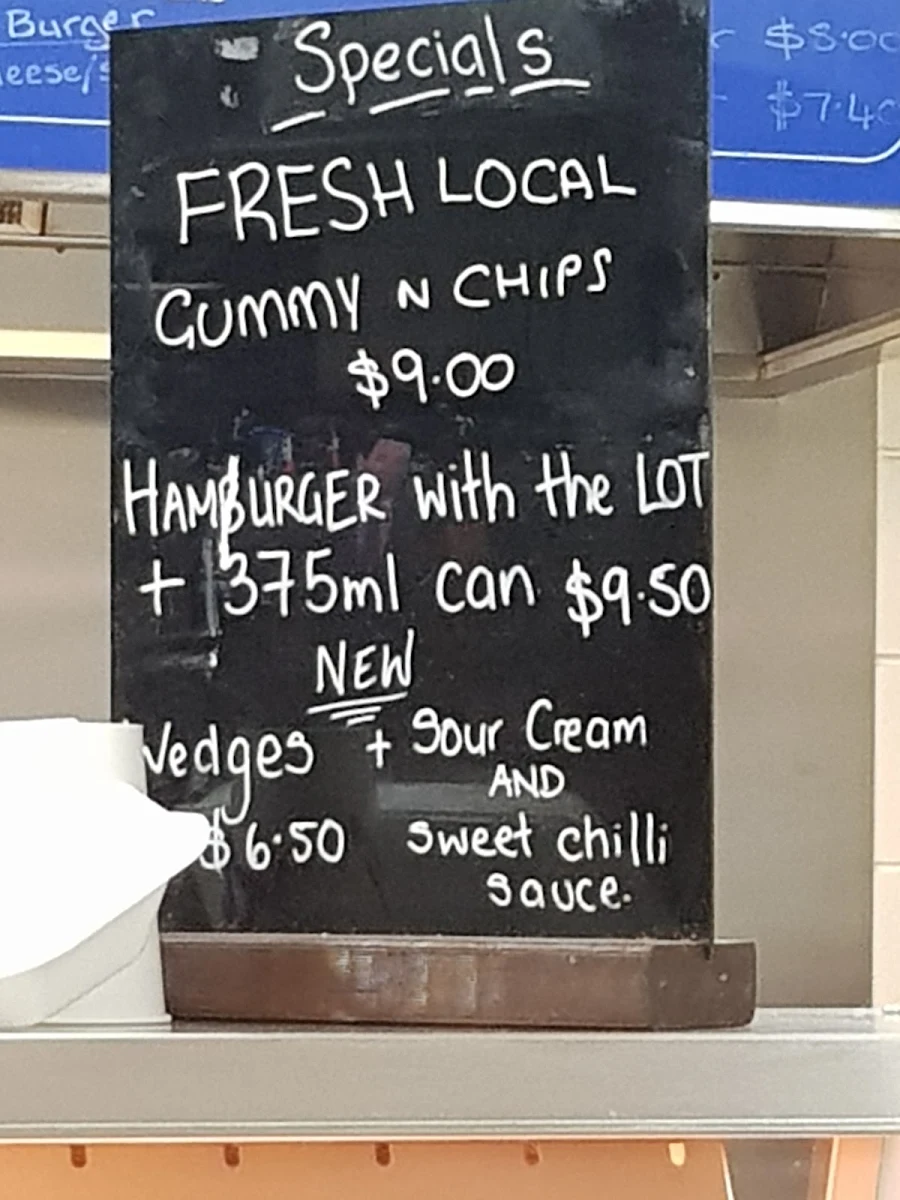 Burger
$8.00
$7.40
Specials
FRESH LOCAL
GUMMY N CHIPS
$9.00
HAMBURGER with the LOT
+ 375ml can $9.50
NEW
Wedges + Sour Cream
AND
$6.50 sweet chilli
sauce.